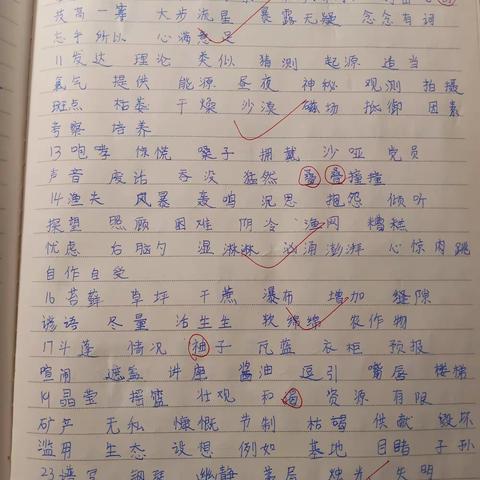 技高一筹 大步流星 暴露无疑 念念有词
忘乎所以 心满意足
11发达 理论 类似 猜测 起源 适当
氧气 提供 能源 昼夜 神秘 观测 拍摄
斑点 枯萎 干燥 沙漠 磁场 抵御 因素
考察 培养
13咆哮 惊慌 嗓子 拥戴 沙哑 党员
声音 废话 吞没 猛然 跌跌撞撞
14渔夫 风暴 轰鸣 沉思 抱怨 倾听
探望 照顾 困难 阴冷 渔网 糟糕
忧虑 后脑勺 湿淋淋 汹涌澎湃 心惊肉跳
自作自受
16苔藓 草坪 干蔗 瀑布 增加 缝隙
谚语 尽量 活生生 软绵绵 农作物
17斗篷 情况 袖子 瓦蓝 衣柜 预报
喧闹 遮盖 讲座 酱油 逗引 嘴唇 楼梯
19晶莹 摇篮 壮观 和 资源 有限
矿产 无私 慷慨 节制 枯竭 供献 毁坏
滥用 生态 设想 例如 基地 目睹 子孙
23谱写 钢琴 幽静 烛光 失明